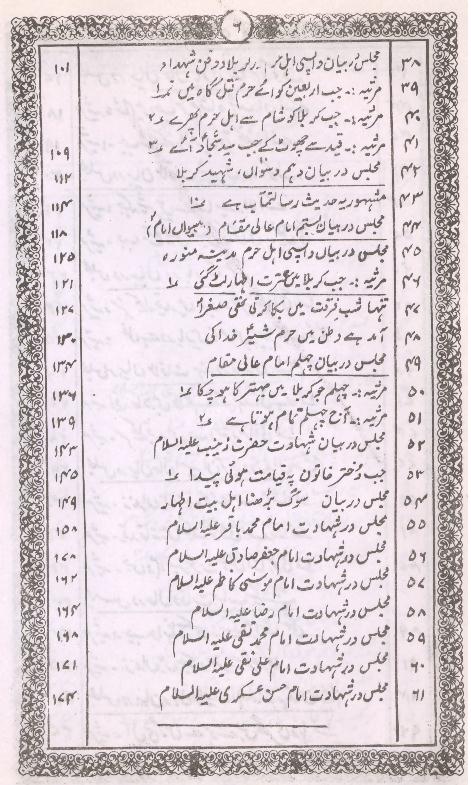 ۶
۳۸ مجلس دربیان واپسی اہل حرم بکربلا و دفن شہداء ۱۰۱
۳۹ مرثیہ:۔ جب اربعین کو آئے حرم قتل گاہ میں ۱
۴۰ مرثیہ:۔ جب کربلا کو شام سے اہل حرم پھرے ۲
۴۱ مرثیہ:۔ قید سے چھوٹ کے جب سید سجاد آئے ۳ ۱۰۹
۴۲ مجلس دربیان دہم دسواں، شہید کربلا ۱۱۲
۴۳ مشہور یہ حدیث رسالتمآب ہے ۱ ۱۱۴
۴۴ مجلس دربیان بستم امام عالی مقام (بیسواں امام) ۱۱۸
۴۵ مجلس دربیان واپسی اہل حرم مدینہ منورہ ۱۲۵
۴۶ مرثیہ:۔ جب کربلا میں عترت اطہار لٹ گئی ۱ ۱۲۱
۴۷ تنہا شب فرقت میں بکا کرتی تھی صغراؑ ۱۲۷
۴۸ آمد ہے وطن میں حرم شیرؑ خدا کی ۱۳۰
۴۹ مجلس دربیان چہلم امام عالی مقام ۱۳۴
۵۰ مرثیہ:۔ چہلم جو کربلا میں بہتر کا ہو چکا ۱ ۱۳۶
۵۱ مرثیہ:۔ آج چہلم تمام ہوتا ہے ۲ ۱۳۹
۵۲ مجلس دربیان شہادت حضرت زینب علیہ السلام ۱۴۳
۵۳ جب دختر خاتون پہ قیامت ہوئی پیدا ۱ ۱۴۵
۵۴ مجلس دربیان سوگ بڑھنا اہل بیت اطہار ۱۴۹
۵۵ مجلس درشہادت امام محمد باقر علیہ السلام ۱۵۸
۵۶ مجلس درشہادت امام جعفر صادق علیہ السلام ۱۷۸
۵۷ مجلس درشہادت امام موسیٰ کاظم علیہ السلام ۱۶۲
۵۸ مجلس درشہادت امام رضا علیہ السلام ۱۶۴
۵۹ مجلس درشہادت امام محمد تقی علیہ السلام ۱۶۸
۶۰ مجلس درشہادت امام علی نقی علیہ السلام ۱۷۱
۶۱ مجلس درشہادت امام حسن عسکری علیہ السلام ۱۷۴